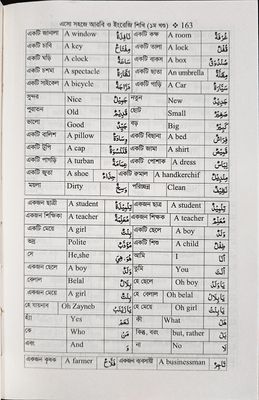 এসো সহজে আরবি ও ইংরেজি শিখি (১ম খণ্ড) ❖ 163
একটি জানালা A window نَافِذَةٌ একটি কক্ষ A room غُرْفَةٌ
একটি চাবি A key مِفْتَاحٌ একটি তালা A lock قُفْلٌ
একটি ঘড়ি A clock سَاعَةٌ একটি বাকস A box صُنْدُوْقٌ
একটি চশমা A spectacle একটি ছাতা An umbrella مِظَلَّةٌ
একটি সাইকেল A bicycle دَرَّاجَةٌ একটি গাড়ি A Car سَيَّارَةٌ
সুন্দর Nice جَمِيْلٌ নতুন New جَدِيْدٌ
পুরাতন Old قَدِيْمٌ ছোট Small صَغِيْرٌ
ভালো Good جَيِّدٌ বড় Big كَبِيْرٌ
একটি বালিশ A pillow وِسَادَةٌ একটি বিছানা A bed
একটি টুপি A cap قَلَنْسُوَةٌ একটি জামা A shirt قَمِيْصٌ
একটি পাগড়ি A turban عِمَامَةٌ একটি পোশাক A dress لِبَاسٌ
একটি জুতা A shoe حِذَاءٌ একটি রুমাল A handkerchif مِنْدِيْلٌ
ময়লা Dirty وَسِخٌ পরিচ্ছন্ন Clean نَظِيْفٌ
একজন ছাত্রী A student تِلْمِيْذَةٌ একজন ছাত্র A student تِلْمِيْذٌ
একজন শিক্ষিকা A teacher مُعَلِّمَةٌ একজন শিক্ষক A teacher مُعَلِّمٌ
একটি মেয়ে A girl একটি ছেলে A boy وَلَدٌ
ভদ্র Polite একটি শিশু A child طِفْلٌ
সে He,she আমি I أَنَا
একজন ছেলে A boy وَلَدٌ তুমি You أَنْتَ
বেলাল Belal بِلَالٌ হে ছেলে Oh boy يَا وَلَدُ
একজন মেয়ে A girl بِنْتٌ হে বেলাল Oh belal يَا بِلَالُ
হে যায়নাব Oh Zayneb يَا زَيْنَبُ হে মেয়ে Oh girl يَا بِنْتُ
হ্যাঁ Yes نَعَمْ কী What
কে Who مَنْ কিন্তু, বরং but, rather بَلْ
এবং And وَ না No لَا
একজন কৃষক A farmer فَلَّاحٌ একজন ব্যবসায়ী A businessman تَاجِرٌ